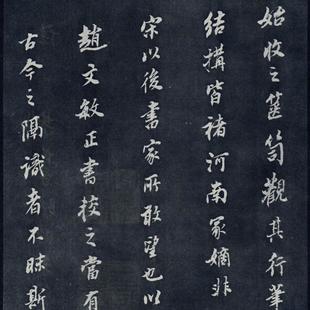 姑收之篋笥觀其行筆
結構皆褚河南冢嫡非
宋以後書家所敢望也以
趙文敏正書挍之當有
古今之隔識者不昧斯